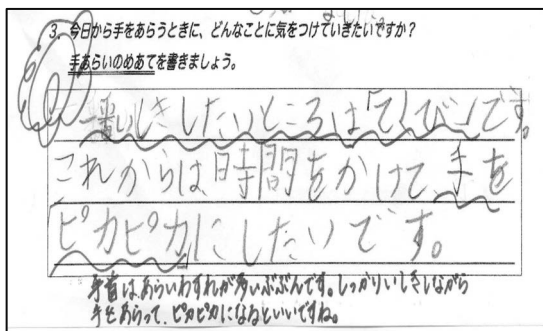 3. 今日から手をあらうときに、どんなことに気をつけていきたいですか？
手あらいのめあてを書きましょう。
一番いしきしたいところは「てくび」です。
これからは、時間をかけて、手を
ピカピカにしたいです。
手首は、あらいわすれが多いぶぶんです。しっかりいしきしながら
手をあらって、ピカピカになるといいですね。